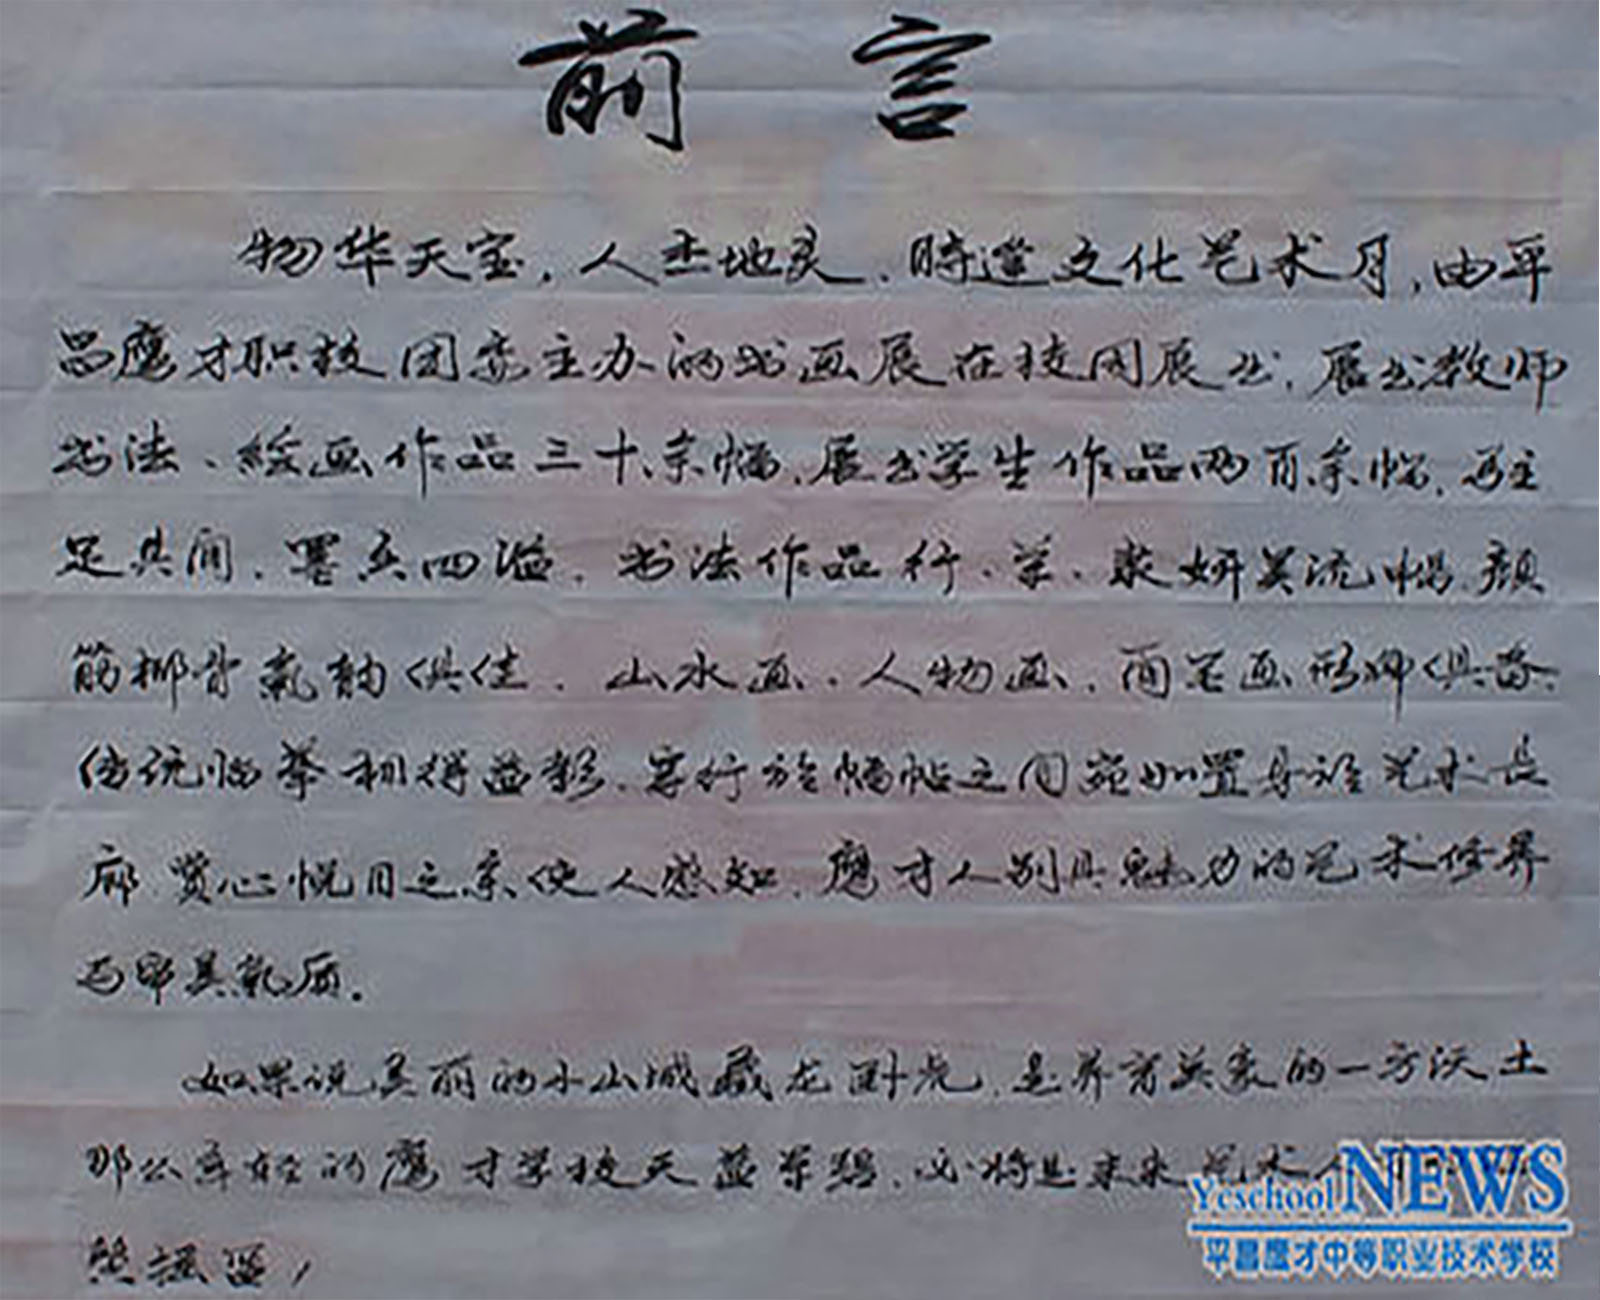 前言
物华天宝，人杰地灵，时逢文化艺术月，由平
昌鹰才职校团委主办的书画展在校园展出，展出教师
书法、绘画作品三十余幅，展出学生作品两百余幅，驻
足其间，墨香四溢，书法作品行、草、隶妍美流畅，颜
筋柳骨气韵俱佳，山水画、人物画、画形神俱备，
传统临摹相得益彰，穿行于幅帖之间宛如置身于艺术长
廊，赏心悦目之余使人感知，鹰才人别具魅力的艺术修养
与气质。
如果说美丽的小山城藏龙卧虎，是养育英豪的一方沃土
那么年轻的鹰才学校天蓝草碧，必将是未来艺术
摇篮！
Yeschool NEWS
平昌鹰才中等职业技术学校